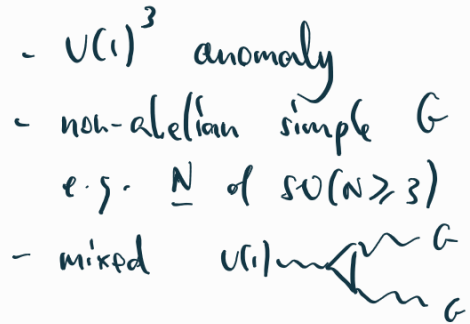 - U(1)³ anomaly
- non-abelian simple G
e.g. N of SU(N≥3)
- mixed U(1) G
G